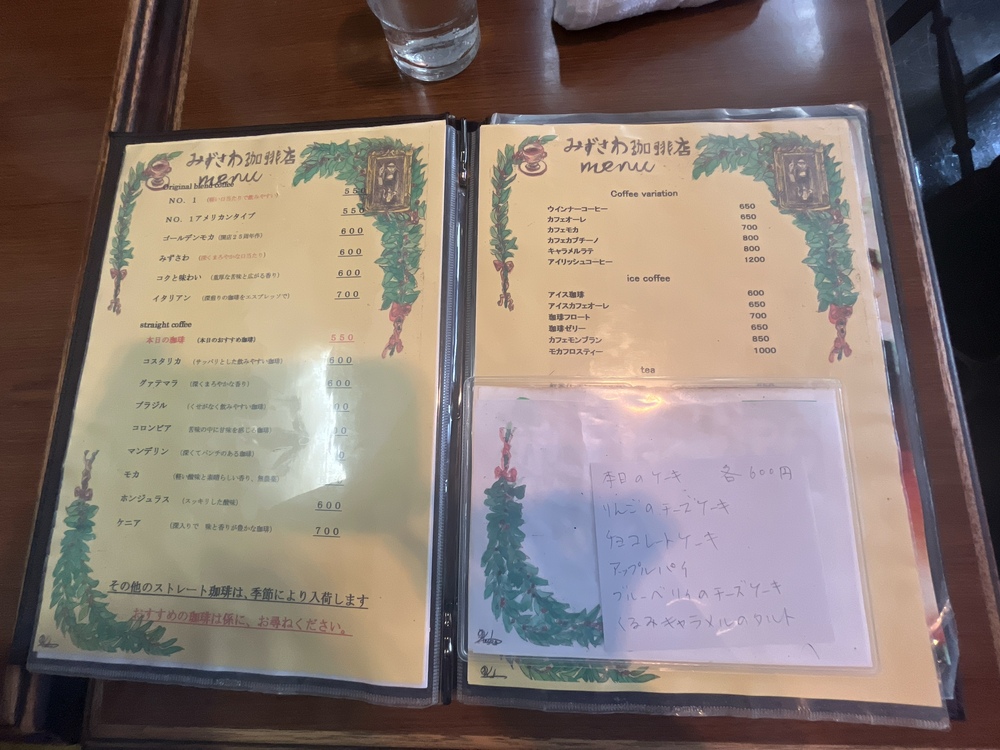 みずさわ珈琲店
menu
Original blend coffee
NO. 1 550
NO. 1アメリカンタイプ 550
ゴールデンモカ 600
みずさわ 600
コクと味わい (重厚な苦味と広がる香り) 600
イタリアン (深煎りの珈琲をエスプレッソで) 700
straight coffee
本日の珈琲 (本日のおすすめ珈琲) 550
コスタリカ (サッパリとした飲みやすい珈琲) 600
グァテマラ (深くまろやかな香り) 600
ブラジル (くせがなく飲みやすい珈琲)
コロンビア 苦味の中に甘味を感じる珈琲
マンデリン (深くてパンチのある珈琲)
モカ (軽い酸味と素晴らしい香り、無農薬)
ホンジュラス (スッキリした酸味) 600
ケニア (深入りで 味と香りが豊かな珈琲) 700
その他のストレート珈琲は、季節により入荷します
おすすめの珈琲は係に、お尋ねください。
みずさわ珈琲店
menu
Coffee variation
ウインナーコーヒー 650
カフェオーレ 650
カフェモカ 700
カフェカプチーノ 800
キャラメルラテ 800
アイリッシュコーヒー 1200
ice coffee
アイス珈琲 600
アイスカフェオーレ 650
珈琲フロート 700
珈琲ゼリー 650
カフェモンブラン 850
モカフロスティー 1000
tea
本日のケーキ 各600円
りんごのチーズケーキ
チョコレートケーキ
アップルパイ
ブルーベリィのチーズケーキ
くるみキャラメルのタルト